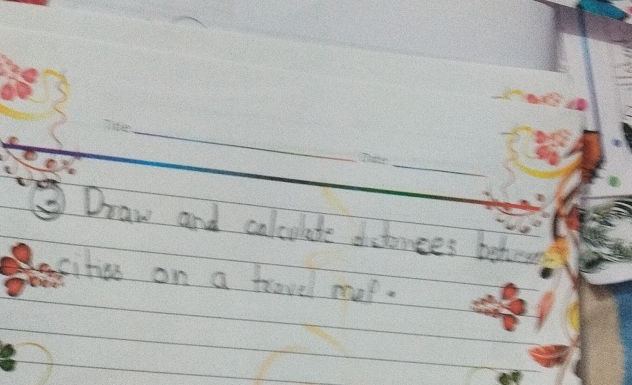 Title: Date:
③ Draw and calculate distances between
cities on a travel map.